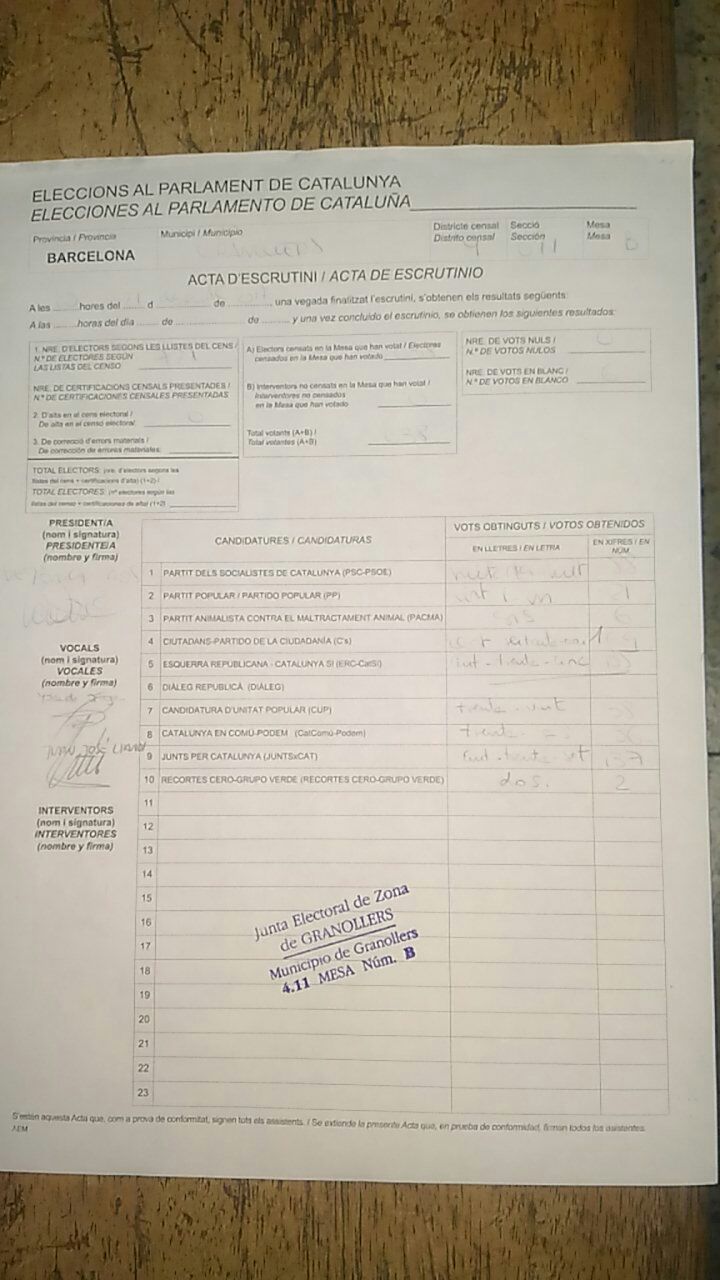 ELECCIONS AL PARLAMENT DE CATALUNYA
ELECCIONES AL PARLAMENTO DE CATALUÑA
Província / Provincia
Municipi / Municipio
Districte censal
Distrito censal
Secció
Sección
Mesa
Mesa
BARCELONA
4
011
B
ACTA D'ESCRUTINI / ACTA DE ESCRUTINIO
A les ........ hores del ...... d ............ de ............, una vegada finalitzat l'escrutini, s'obtenen els resultats següents:
A las ........ horas del día ...... de ............ de ........ y una vez concluido el escrutinio, se obtienen los siguientes resultados:
1. NRE. D'ELECTORS SEGONS LES LLISTES DEL CENS /
N.º DE ELECTORES SEGÚN
LAS LISTAS DEL CENSO
NRE. DE CERTIFICACIONS CENSALS PRESENTADES /
N.º DE CERTIFICACIONES CENSALES PRESENTADAS
2. D'alta en el cens electoral /
De alta en el censo electoral:
3. De correcció d'errors materials /
De corrección de errores materiales:
TOTAL ELECTORS: (nre. d'electors segons les
llistes del cens + certificacions d'alta) (1+2) /
TOTAL ELECTORES: (nº electores según las
listas del censo + certificaciones de alta) (1+2)
A) Electors censats en la Mesa que han votat / Electores
censados en la Mesa que han votado
B) Interventors no censats en la Mesa que han votat /
Interventores no censados
en la Mesa que han votado
Total votants (A+B) /
Total votantes (A+B)
NRE. DE VOTS NULS /
N.º DE VOTOS NULOS
NRE. DE VOTS EN BLANC /
N.º DE VOTOS EN BLANCO
PRESIDENT/A
(nom i signatura)
PRESIDENTE/A
(nombre y firma)
VOCALS
(nom i signatura)
VOCALES
(nombre y firma)
INTERVENTORS
(nom i signatura)
INTERVENTORES
(nombre y firma)
CANDIDATURES / CANDIDATURAS
VOTS OBTINGUTS / VOTOS OBTENIDOS
EN LLETRES / EN LETRA
EN XIFRES / EN NÚM.
1 PARTIT DELS SOCIALISTES DE CATALUNYA (PSC-PSOE)
2 PARTIT POPULAR / PARTIDO POPULAR (PP) vint i un 21
3 PARTIT ANIMALISTA CONTRA EL MALTRACTAMENT ANIMAL (PACMA) sis 6
4 CIUTADANS-PARTIDO DE LA CIUDADANÍA (C's)
5 ESQUERRA REPUBLICANA - CATALUNYA SÍ (ERC-CatSí)
6 DIÀLEG REPUBLICÀ (DIÀLEG)
7 CANDIDATURA D'UNITAT POPULAR (CUP)
8 CATALUNYA EN COMÚ-PODEM (CatComú-Podem)
9 JUNTS PER CATALUNYA (JUNTSxCAT) cent-trenta-set 137
10 RECORTES CERO-GRUPO VERDE (RECORTES CERO-GRUPO VERDE) dos. 2
11
12
13
14
15
16
17
18
19
20
21
22
23
Junta Electoral de Zona
de GRANOLLERS
Municipio de Granollers
4.11 MESA Núm. B
S'estén aquesta Acta que, com a prova de conformitat, signen tots els assistents. / Se extiende la presente Acta que, en prueba de conformidad, firman todos los asistentes.